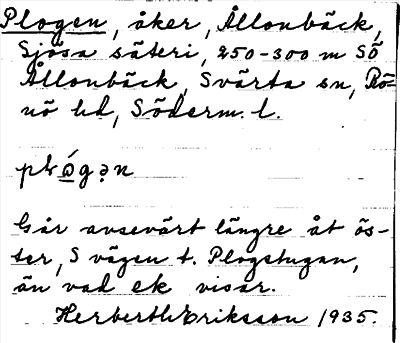 Plogen, åker, Ållonbäck,
Sjösa säteri, 250-300 m SÖ
Ållonbäck, Svärta sn, Rö-
nö hd, Söderm. l.
Går avsevärt längre åt ös-
ter, S vägen t. Plogstugan,
än vad ek visar.
Herberth Eriksson 1935.